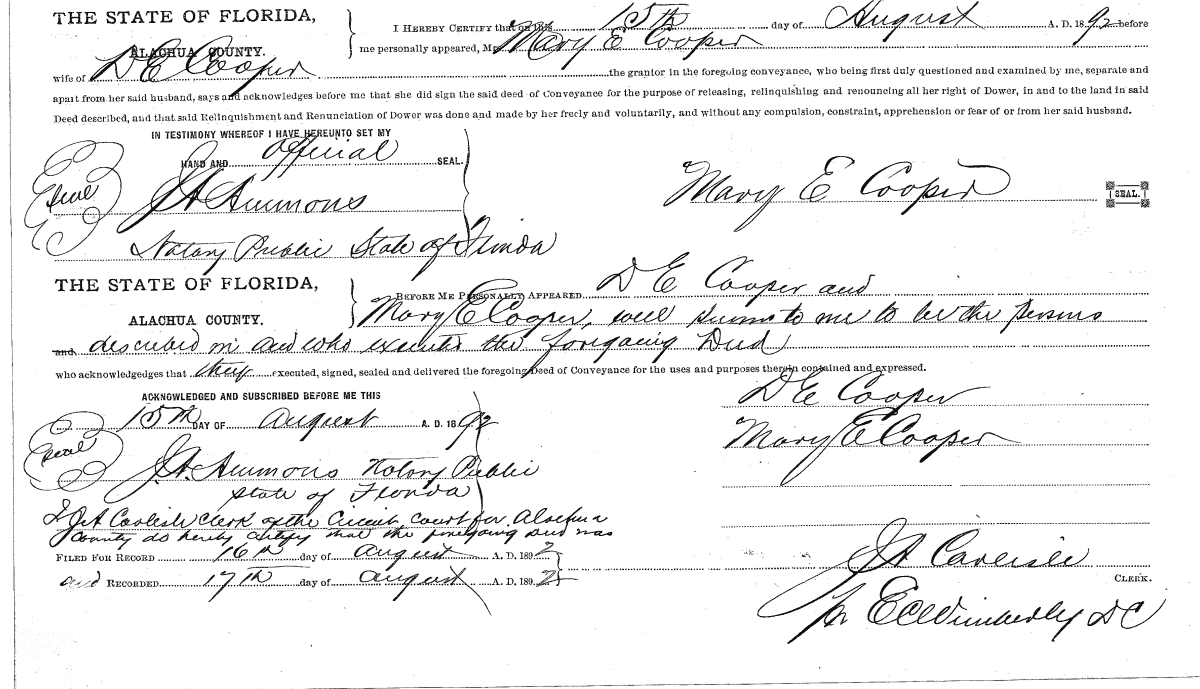 THE STATE OF FLORIDA,
ALACHUA COUNTY.
I HEREBY CERTIFY that on this 15th day of August A. D. 1892 before
me personally appeared, Mrs. Mary E Cooper
wife of D E Cooper the grantor in the foregoing conveyance, who being first duly questioned and examined by me, separate and
apart from her said husband, says and acknowledges before me that she did sign the said deed of Conveyance for the purpose of releasing, relinquishing and renouncing all her right of Dower, in and to the land in said
Deed described, and that said Relinquishment and Renunciation of Dower was done and made by her freely and voluntarily, and without any compulsion, constraint, apprehension or fear of or from her said husband.
IN TESTIMONY WHEREOF I HAVE HEREUNTO SET MY
HAND AND official SEAL.
Seal
J A Ammons
Mary E Cooper SEAL.
Notary Public State of Florida
THE STATE OF FLORIDA,
ALACHUA COUNTY.
BEFORE ME PERSONALLY APPEARED D E Cooper and
Mary E Cooper, well known to me to be the persons
and described in and who executed the foregoing Deed
who acknowledges that they executed, signed, sealed and delivered the foregoing Deed of Conveyance for the uses and purposes therein contained and expressed.
ACKNOWLEDGED AND SUBSCRIBED BEFORE ME THIS
15th DAY OF August A. D. 1892
D E Cooper
Mary E Cooper
Seal
J.A. Ammons Notary Public
State of Florida
I J A Carlisle Clerk of the Circuit Court for Alachua
County do hereby certify that the foregoing Deed was
FILED FOR RECORD 16th day of August A. D. 1892
and RECORDED 17th day of August A. D. 1892
J A Carlisle
CLERK.
pr E C Wimberly D C